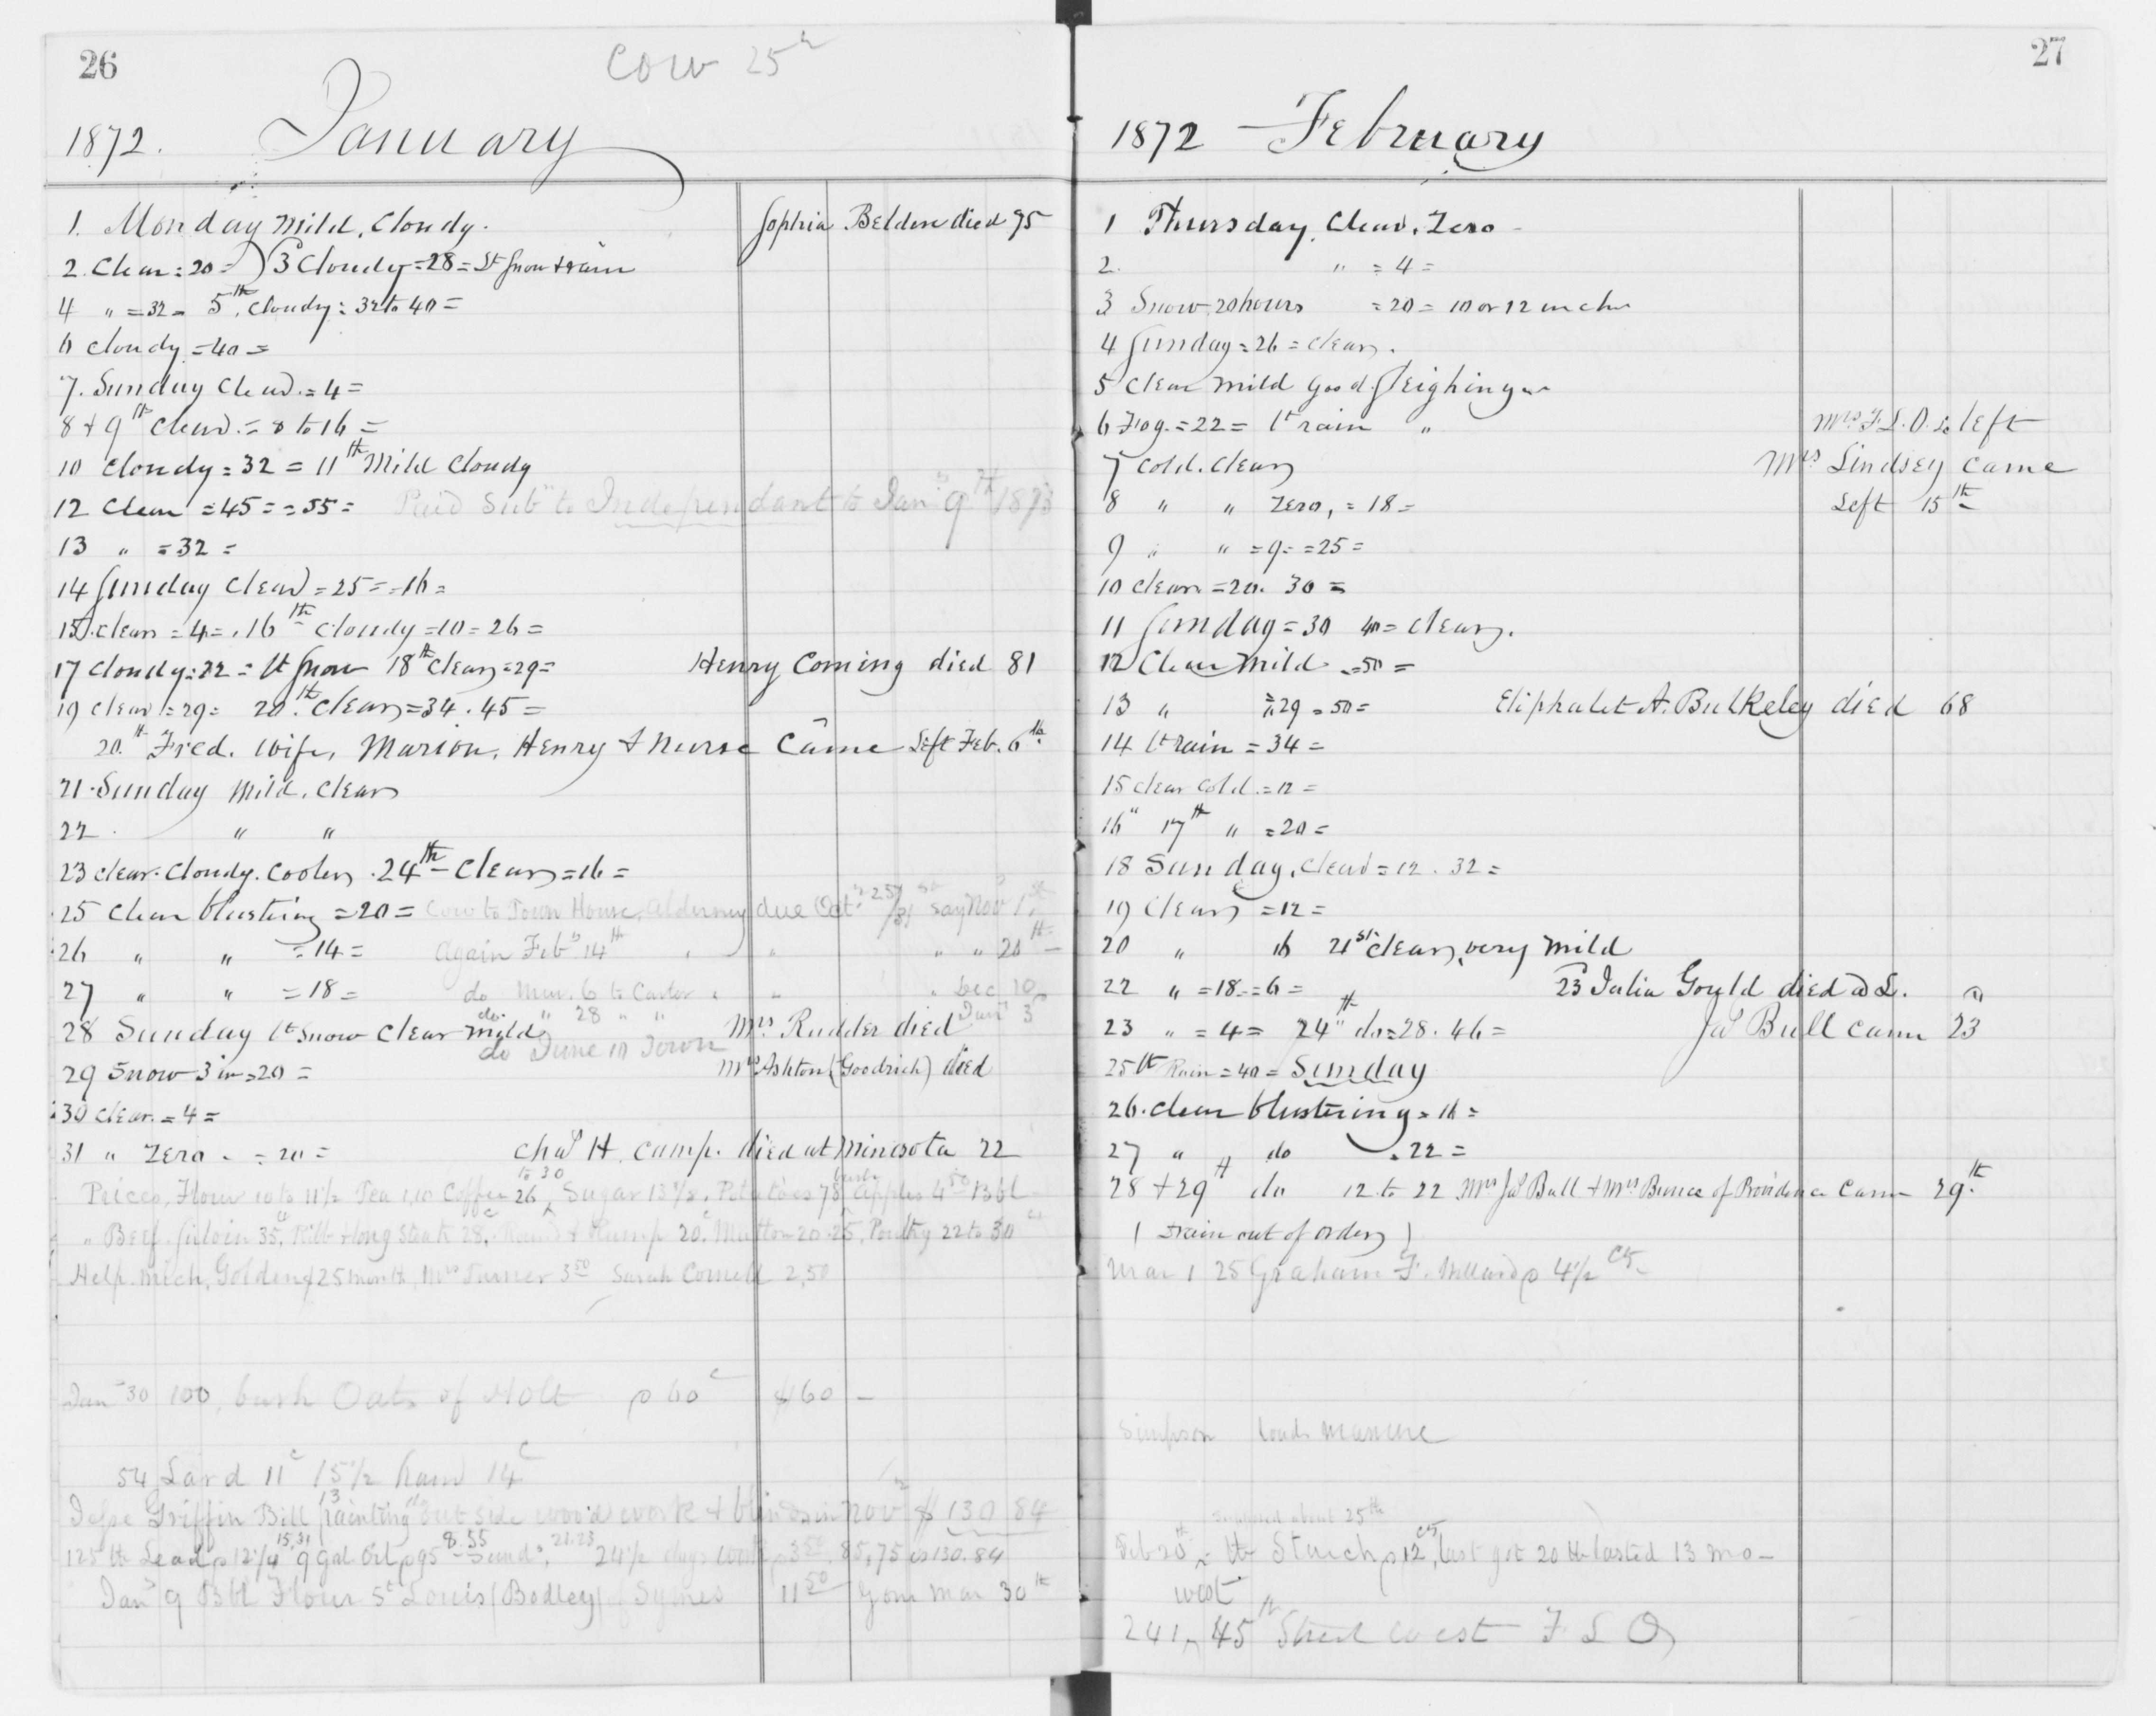 26
Cow 25
1872. January
1. Monday Mild, Cloudy. Sophia Belden died 95
2. Clear =20= 3 Cloudy =28= Lt Snow & rain
4 " =32= 5th Cloudy = 32 to 40 =
6 Cloudy =40=
7. Sunday Clear. =4=
8 & 9th Clear. = 8 to 16 =
10 Cloudy =32= 11th Mild Cloudy
12 Clear =45= =55= Paid Sub to Independant to Jany 9th 1873
13 " =32=
14 Sunday Clear =25= =16=
15. Clear =4=. 16th Cloudy =10=26=
17 Cloudy =22= Lt Snow 18th Clear =29= Henry Corning died 81
19 Clear =29= 20th. Clear =34. 45=
20th Fred. Wife, Marion, Henry & Nurse Came Left Feb. 6th
21. Sunday Mild. Clear
22. " "
23 Clear. Cloudy. Cooler. 24th Clear =16=
25 Clear blustering =20= Cow to Town House, Alderney due Oct. 25 say Nov 1st
26 " " =14= Again Feby 14th " " " " 20th
27 " " =18= do Mar. 6 to Carter " " " Dec 10
do " 28 " " Jany 3
28 Sunday Lt Snow Clear Mild Mrs Rudder died
do June 10 Town
29 Snow 3 in =20= Mrs Ashton (Goodrich) died
30 Clear. =4=
31 " Zero. =20= Chas H. Camp. died at Minesota 22
Prices, Flour 10 to 11 1/2 Tea 1,10 Coffee 26 to 30, Sugar 13 1/2, Potatoes 75 bush Apples 4 50 Bbl
" Beef Sirloin 35, Rib & long Steak 28, Round & Rump 20, Mutton 20.25, Poultry 22 to 30
Help. Mich, Golden $25 month, Mrs Turner 3 50 Sarah Cornell 2,50
Jan 30 100, bush Oats of Holt p 60c $60 –
54 Lard 11c 15 1/2 ham 14c
Jesse Griffin Bill painting out side wood work & blinds in Nov $130 84
125 lb Lead p 12 1/4 15,31 9 gal Oil p 95 8.55 21.23 24 1/2 days work p 3 50, 85,75 is 130.84
Jany 9 Bbl Flour St Louis (Bodley) of Symes 11 50 gone Mar 30th
27
1872 February
1 Thursday. Clear. Zero
2. " =4=
3 Snow 20 hours =20= 10 or 12 inches
4 Sunday =26= Clear.
5 Clear Mild Good Sleighing
6 Fog. =22= Lt rain " Mrs F.L.O. left
7 Cold. Clear Mrs Lindsey Came
8 " " Zero, =18= Left 15th
9 " " =9= =25=
10 Clear =20. 30=
11 Sunday =30 40= Clear.
12 Clear Mild =50=
13 " =29=50= Eliphalet A. Bulkeley died 68
14 Lt rain =34=
15 Clear Cold =12=
16 " 17th " =20=
18 Sunday. Clear =12. 32=
19 Clear =12=
20 " 16 21st Clear, very Mild
22 " =18==6= 23 Julia Gould died
23 " =4= 24th do =28. 46= Jas Bull Came 23
25th Rain =40= Sunday
26. Clear blustering =16=
27 " do =22=
28 & 29th do 12 to 22 Mrs Jas Bull & Mrs Bunce of Providence Came 29.th
( train out of order )
Mar 1 25 Graham F. Millard p 4 1/2 cts
Simpson loads manure
supposed about 25th
Feb 20th lb Starch p 12 cts, last got 20 lb lasted 13 mo
West
241, 45th Street West F L O